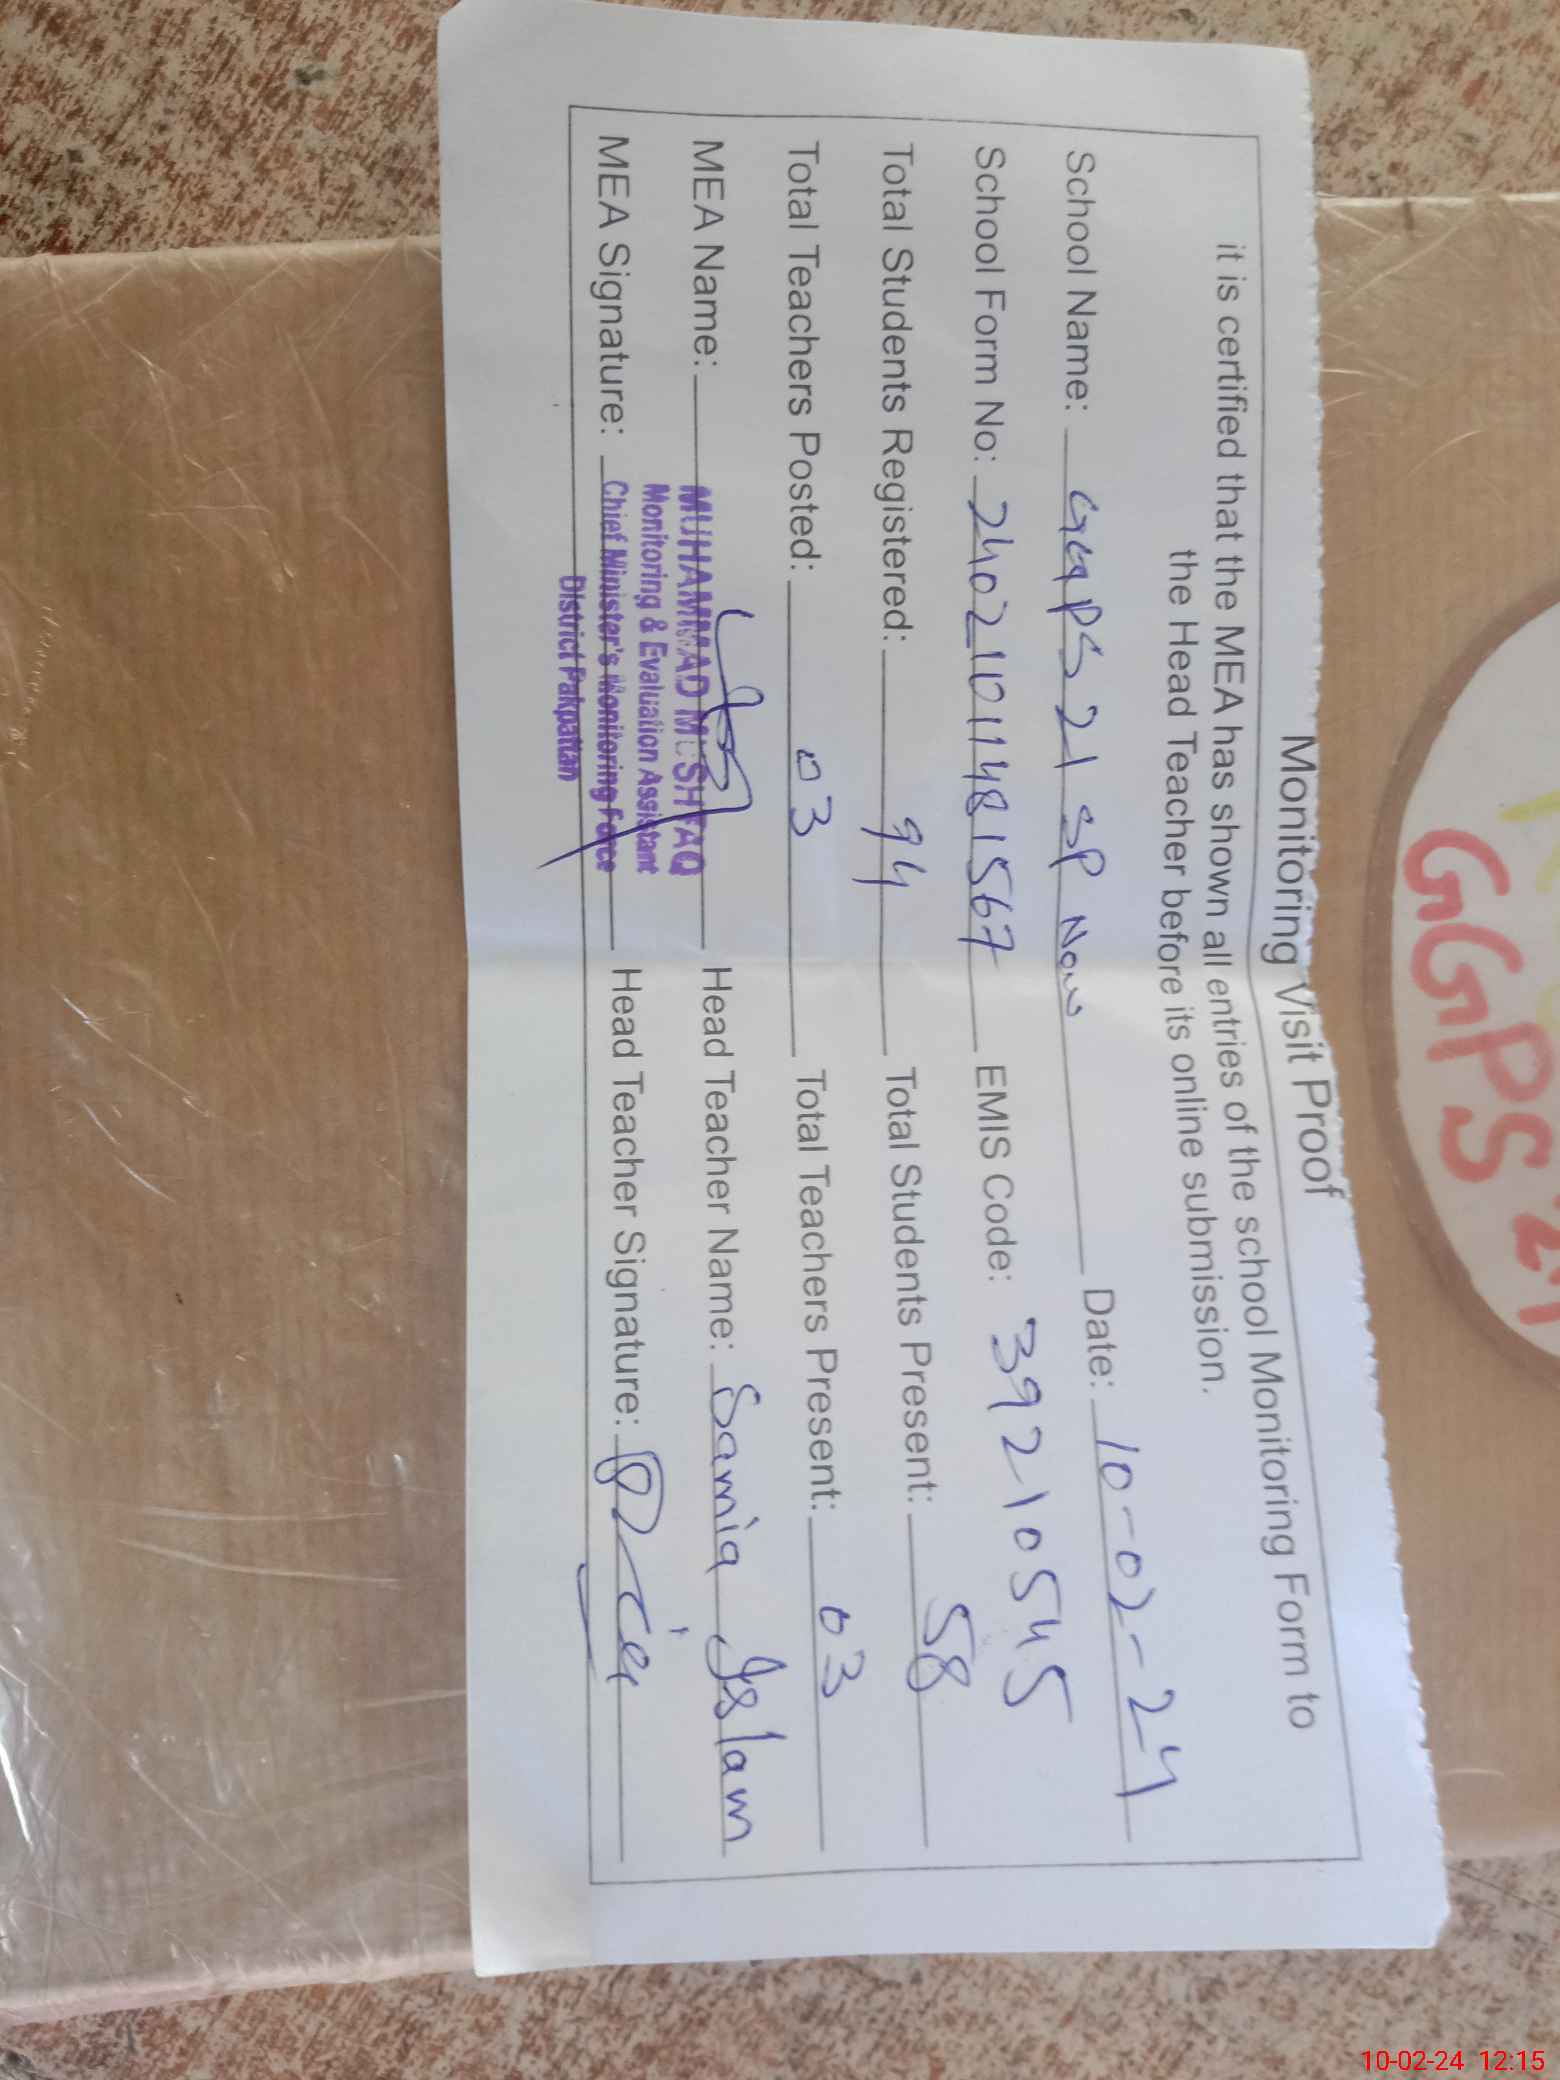 Monitoring Visit Proof
it is certified that the MEA has shown all entries of the school Monitoring Form to
the Head Teacher before its online submission.
School Name: GGPS 21 SP Now Date: 10-02-24
School Form No: 24021011481567 EMIS Code: 39210545
Total Students Registered: 94 Total Students Present: 58
Total Teachers Posted: 03 Total Teachers Present: 03
MEA Name: MUHAMMAD MUSHTAQ Head Teacher Name: Samia Islam
Monitoring & Evaluation Assistant
MEA Signature: Chief Minister's Monitoring Force Head Teacher Signature:
District Pakpattan
GGPS 21
10-02-24 12:15